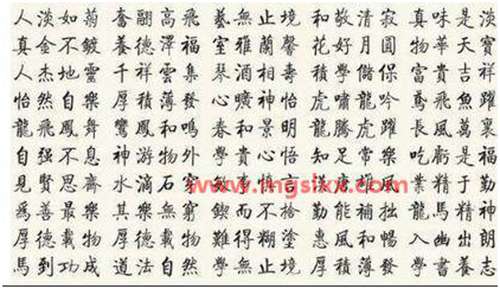 人淡如菊 奮翮高飛 藝無止境 和敬清寂 真味是淡
真金不鍍 養德澤福 室雅蘭馨 花好月圓 物華天寶
人杰地靈 千祥雲集 琴酒相壽 積學儲 富貴吉祥
怡然自樂 厚積薄發 曠神怡 虎嘯龍吟 鳶飛魚躍
龍飛鳳舞 鸞鳳和鳴 春和景明 龍騰虎躍 長風萬裏
自强不息 神游物外 學貴心悟 知足常樂 吃虧是福
見賢思齊 水滴石穿 業精于勤
www.mgslxx.com
爲善最樂 其樂無窮 鍥而不捨 勤能補拙 龍馬精神
厚德載物 厚德載物 難得糊塗 惠風和暢 入幽出朗
馬到功成 道法自然 學無止境 厚積薄發 學書養志